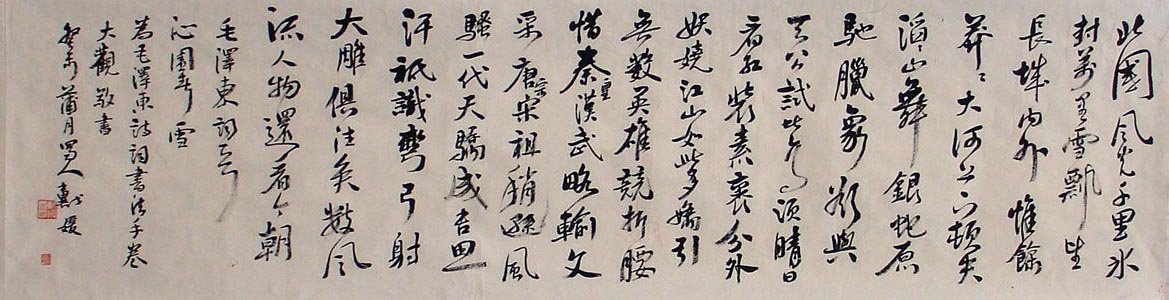 北國風光千里冰
封萬里雪飄望
長城內外惟餘
莽〻大河上下頓失
滔〻山舞銀蛇原
馳臘象欲與
天公試比高須晴日
看紅裝素裹分外
妖嬈江山如此多嬌引
無數英雄競折腰
惜秦皇漢武略輸文
采唐宗宋祖稍遜風
騷一代天驕成吉思
汗祗識彎弓射
大雕俱往矣數風
流人物還看今朝
毛澤東詞
沁園春雪
為毛澤東詩詞書法手卷
大觀敬書
癸未蒲月